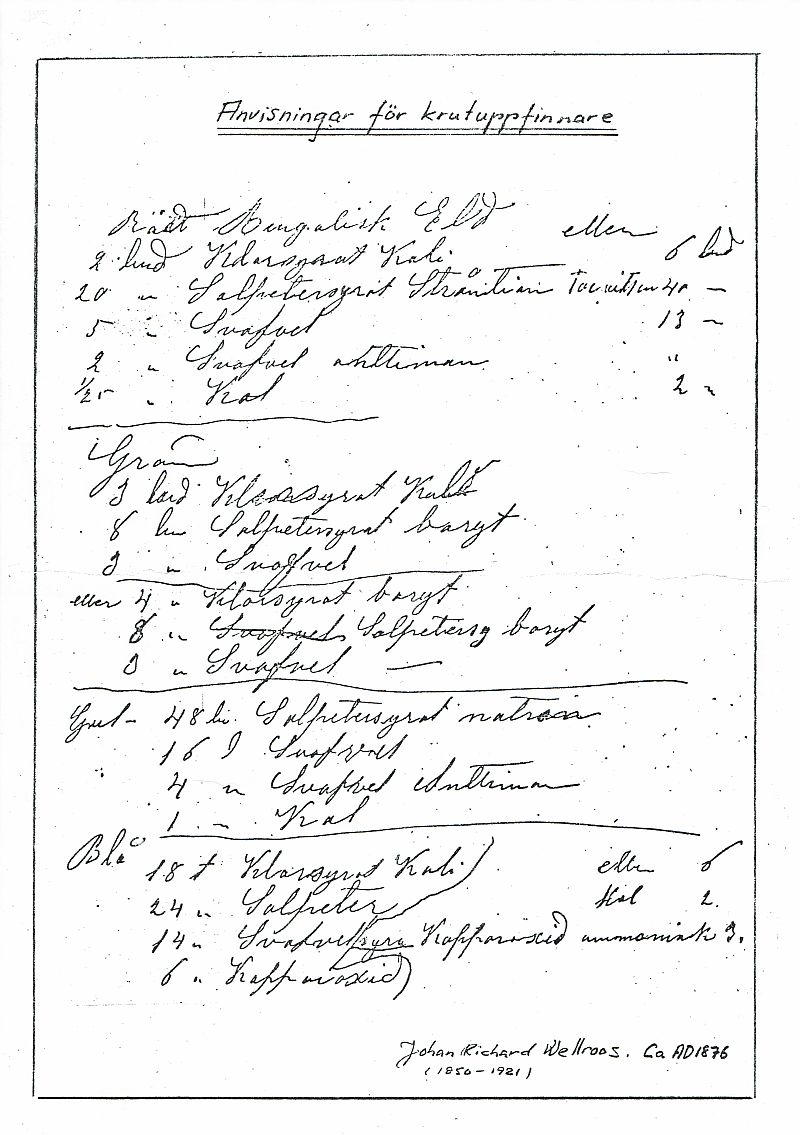 Anvisningar för krutuppfinnare
Rädt Bengalisk Eld eller 6 lod
2 lod Klorsyrat Kali
20 " Salpetersyrat Strontian 40 —
5 " Svafvel 13 —
2 " Svafvel anttiman "
1/25 " Kol 2 "
Grön
3 lod Klorsyrat Kali
8 " Salpetersyrat baryt
3 " Svafvel
eller 4 " Klorsyrat baryt
8 " Salpetersy baryt
3 " Svafvel —
Gul - 48 Salpetersyrat natron
16 Svafvel
4 " Svafvel Anttiman
1 " Kol
Blå 18 Klorsyrat Kali eller 6
24 " Salpeter Kol 2.
14 " Svafvelsyra Kopparoxid ammoniak 3.
6 " Kopparoxid
Johan Richard Wellroos. Ca AD1876
(1850-1921)